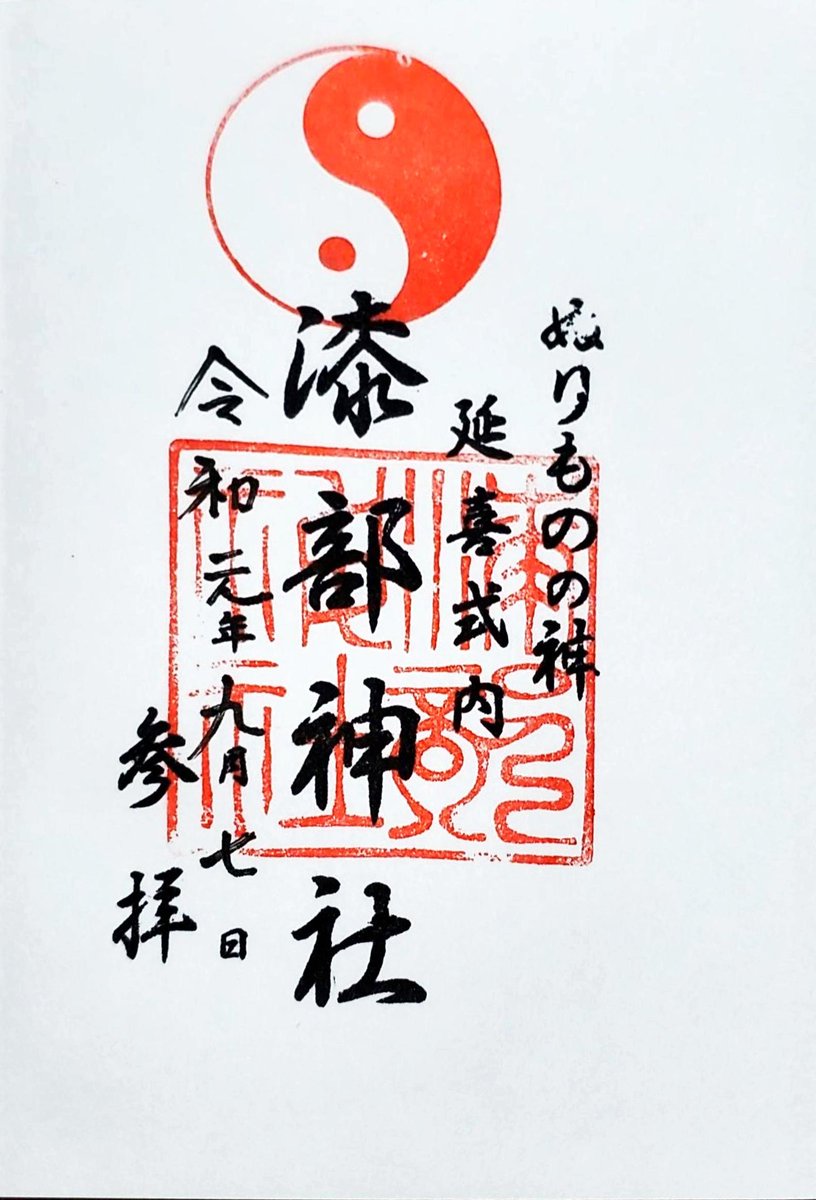 ぬりものの神
延喜式内
漆部神社
令和元年九月七日
参拝